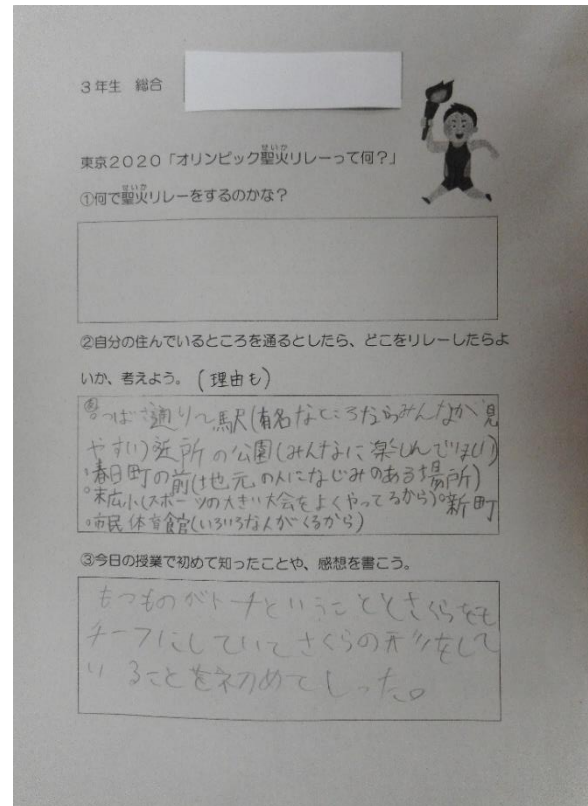 3年生 総合
東京2020「オリンピック聖火リレーって何？」
①何で聖火リレーをするのかな？
②自分の住んでいるところを通るとしたら、どこをリレーしたらよ
いか、考えよう。(理由も)
つばさ通り 駅(有名なところだからみんなが見
やすい)近所の公園(みんなに楽しんでほしい)
春日町の前(地元の人になじみのある場所)
末広小(スポーツの大きい大会をよくやってるから)新町
市民体育館(いろいろな人がくるから)
③今日の授業で初めて知ったことや、感想を書こう。
もつものがトーチということとさくらをも
チーフにしていてさくらの形をして
いることを初めてしった。